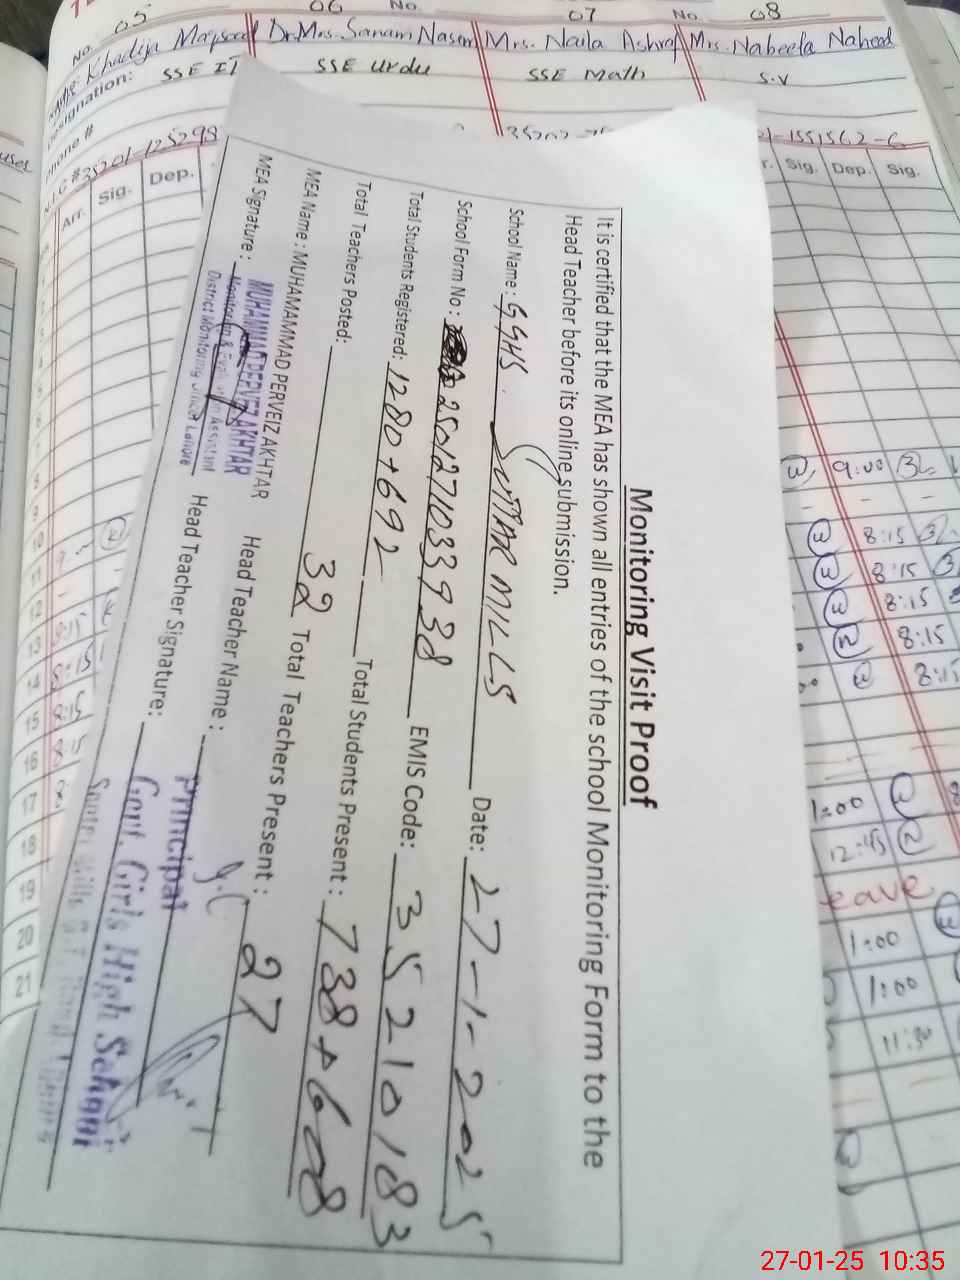 05
06
No.
07
No.
08
No.
Name: Khadija
Dr. Mrs. Sanam Nasem
Mrs. Naila Ashraf
Mrs. Nabeela Naheed
Designation: SSE IT
SSE Urdu
SSE Math
S.V
35201-125298
Arr. Sig. Dep.
Sig. Dep. Sig.
Monitoring Visit Proof
It is certified that the MEA has shown all entries of the school Monitoring Form to the
Head Teacher before its online submission.
School Name: GGHS. SUTAR MILLS Date: 27-1-2025
School Form No: 2501271033938 EMIS Code: 35210183
Total Students Registered: 1280+692 Total Students Present: 738+608
Total Teachers Posted: 32 Total Teachers Present: 27
MEA Name: MUHAMAMMAD PERVEIZ AKHTAR Head Teacher Name:
MEA Signature: Head Teacher Signature:
MUHAMMAD PERVEZ AKHTAR
Monitoring & Evaluation Assistant
District Monitoring Lahore
Principal
Govt. Girls High School
9:00
8:15
8:15
8:15
8:15
8:15
1:00
12:45
Leave
1:00
1:00
11:30
8
9
10
11
12
13
14
15 8:15
16 8:15
17
18
19
20
21
27-01-25 10:35